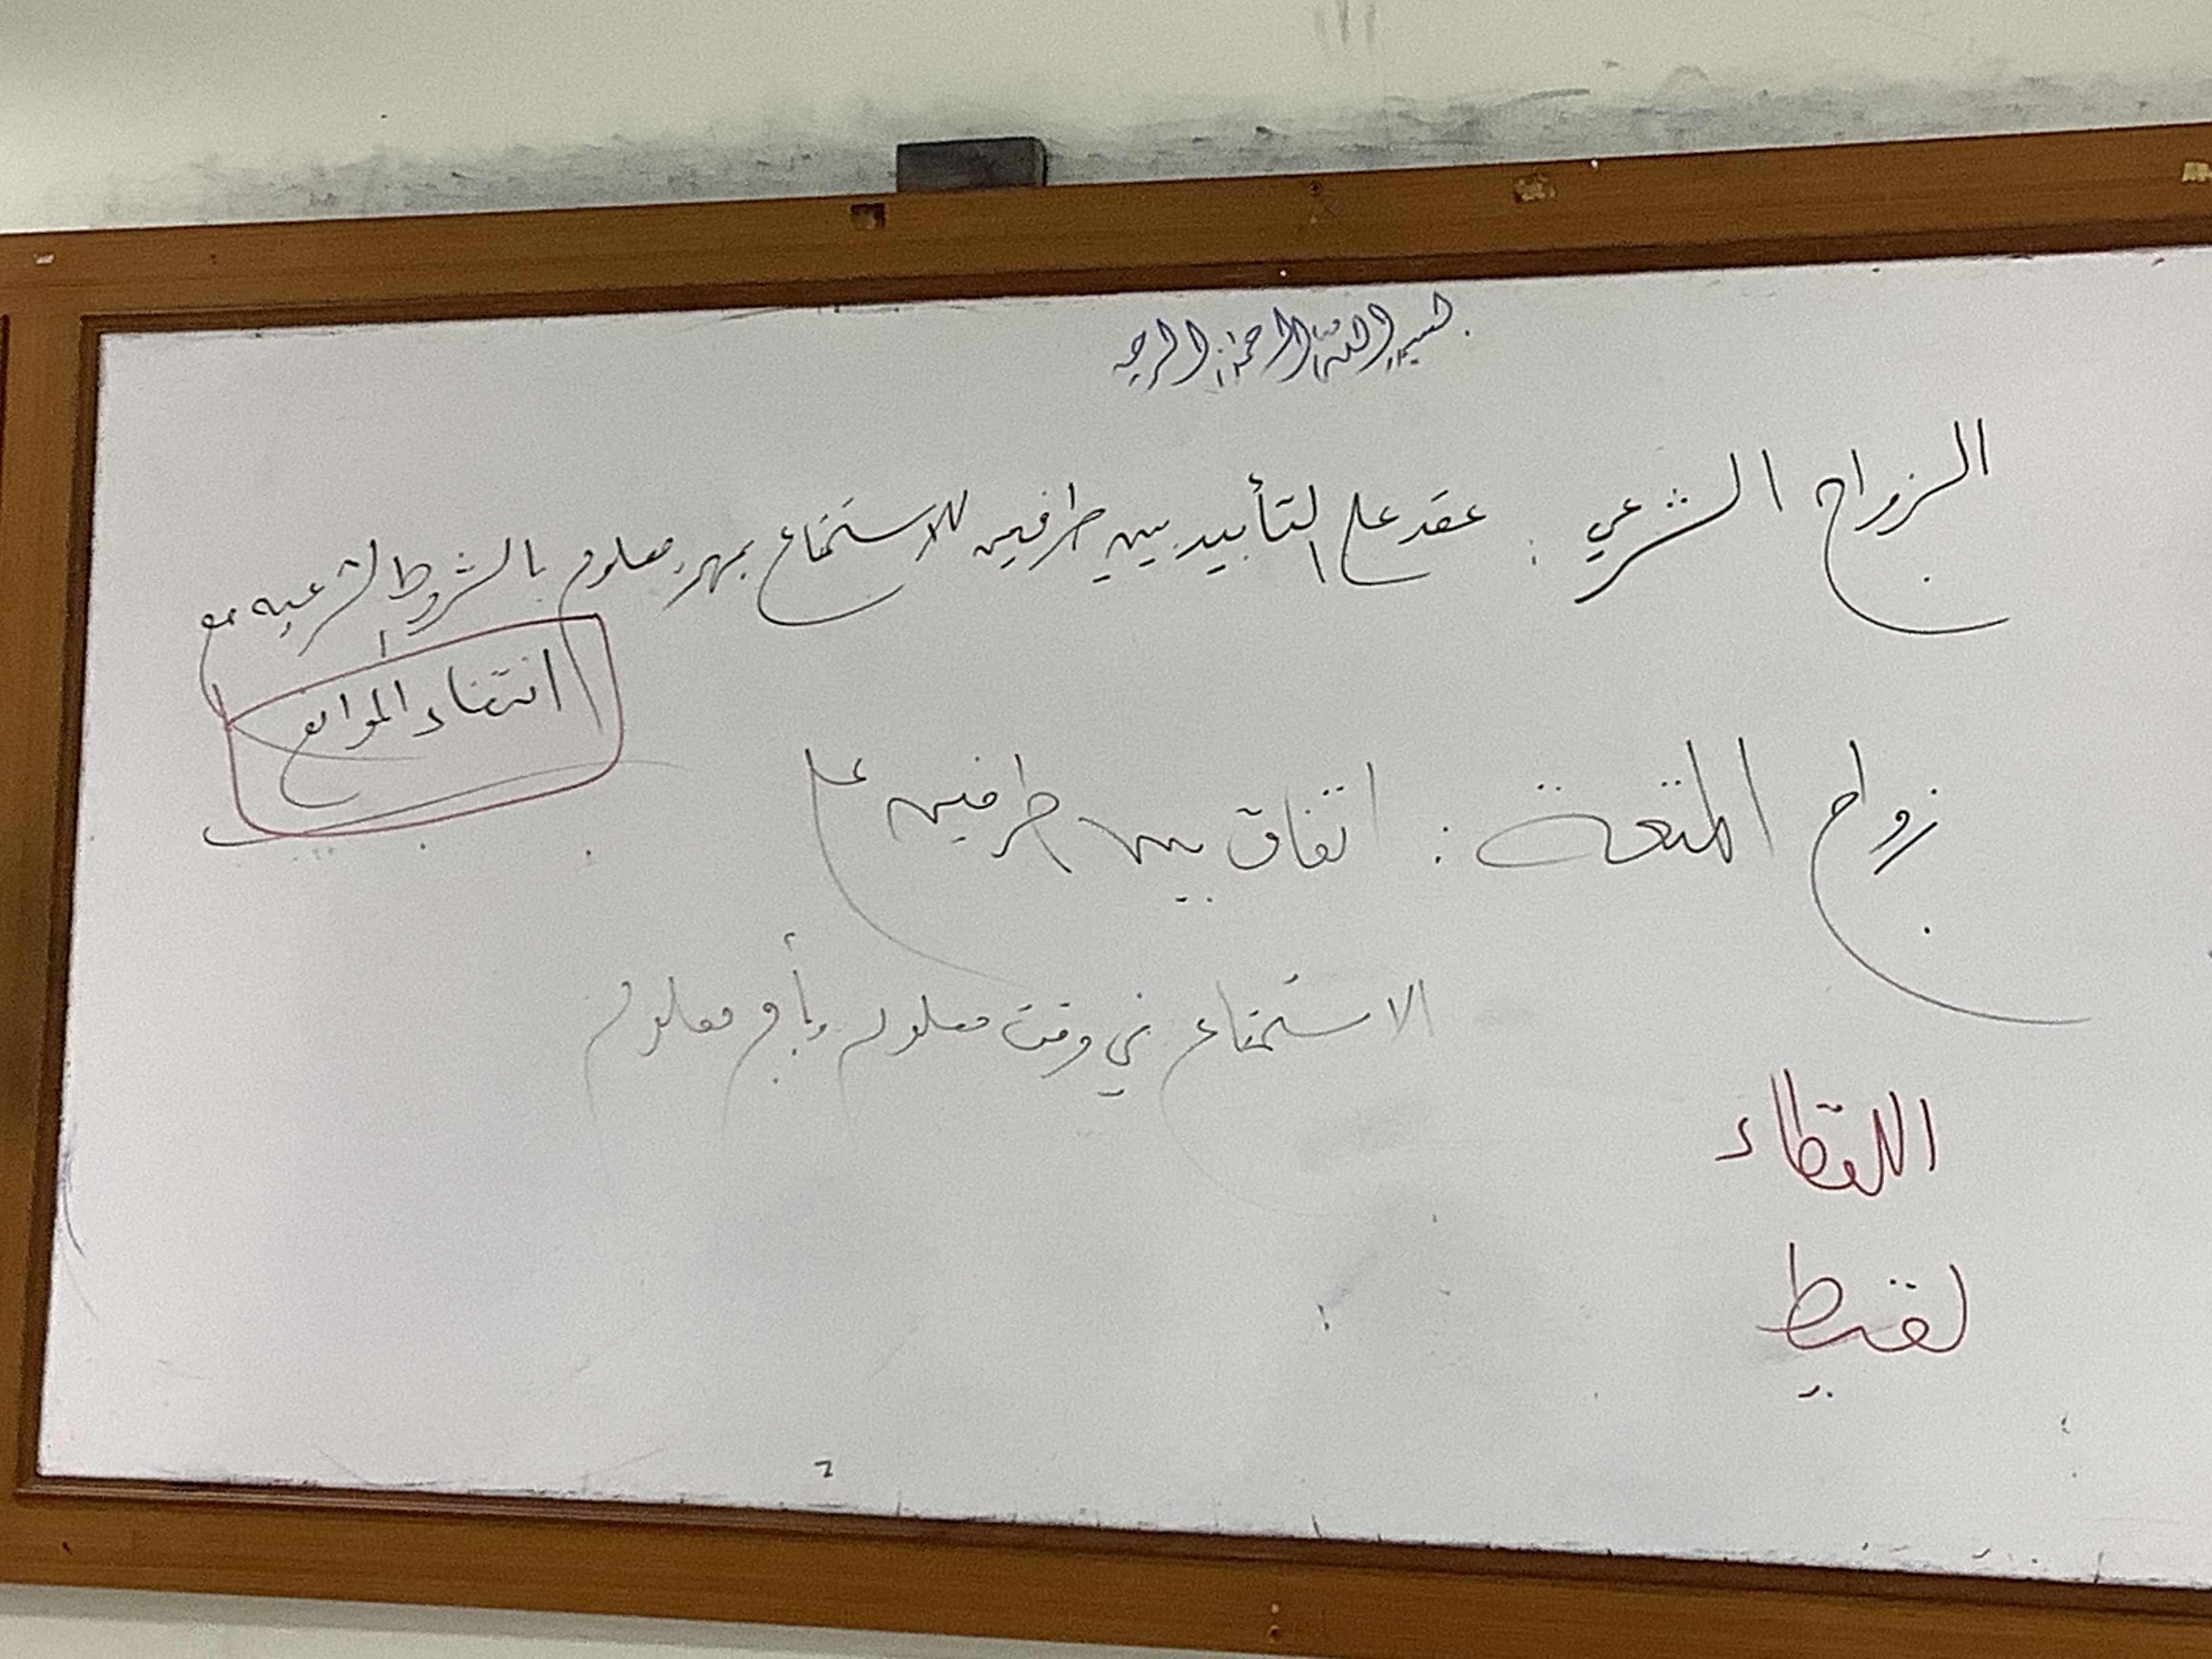 بسم الله الرحمن الرحيم
الزواج الشرعي : عقد على التأبيد بين طرفين للاستمتاع بمهر معلوم بالشروط الشرعيه مع
انتفاء الموانع
زواج المتعة : اتفاق بين طرفين على
الاستمتاع في وقت معلوم وبأجر معلوم
اللقطاء
لقيط